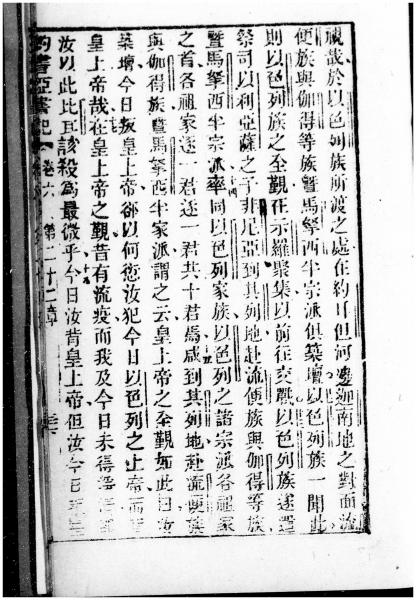 視哉於以色列族所渡之處在約耳但河邊迦南地之對面流
便族與伽得等族暨馬拏西半宗派俱築壇以色列族一聞此
則以色列族之全覲在示羅聚集以前往交戰以色列族遂遣
祭司以利亞薩之子非尼亞到其列地赴流便族與伽得等族
暨馬拏西半宗派率同以色列家族以色列之諸宗派各祖家
之首各祖家逐一君逐一君共十君焉咸到其列地赴流便族
與伽得族暨馬拏西半家派謂之云皇上帝之全覲如此曰汝
築壇今日叛皇上帝卻以何愆汝犯今日以色列之上帝
皇上帝哉在皇上帝之覲昔有流疫而我及今日未得
汝以此比耳該殺為最微乎今日汝背皇上帝但汝今日
約書亞書記 卷六 第二十二章